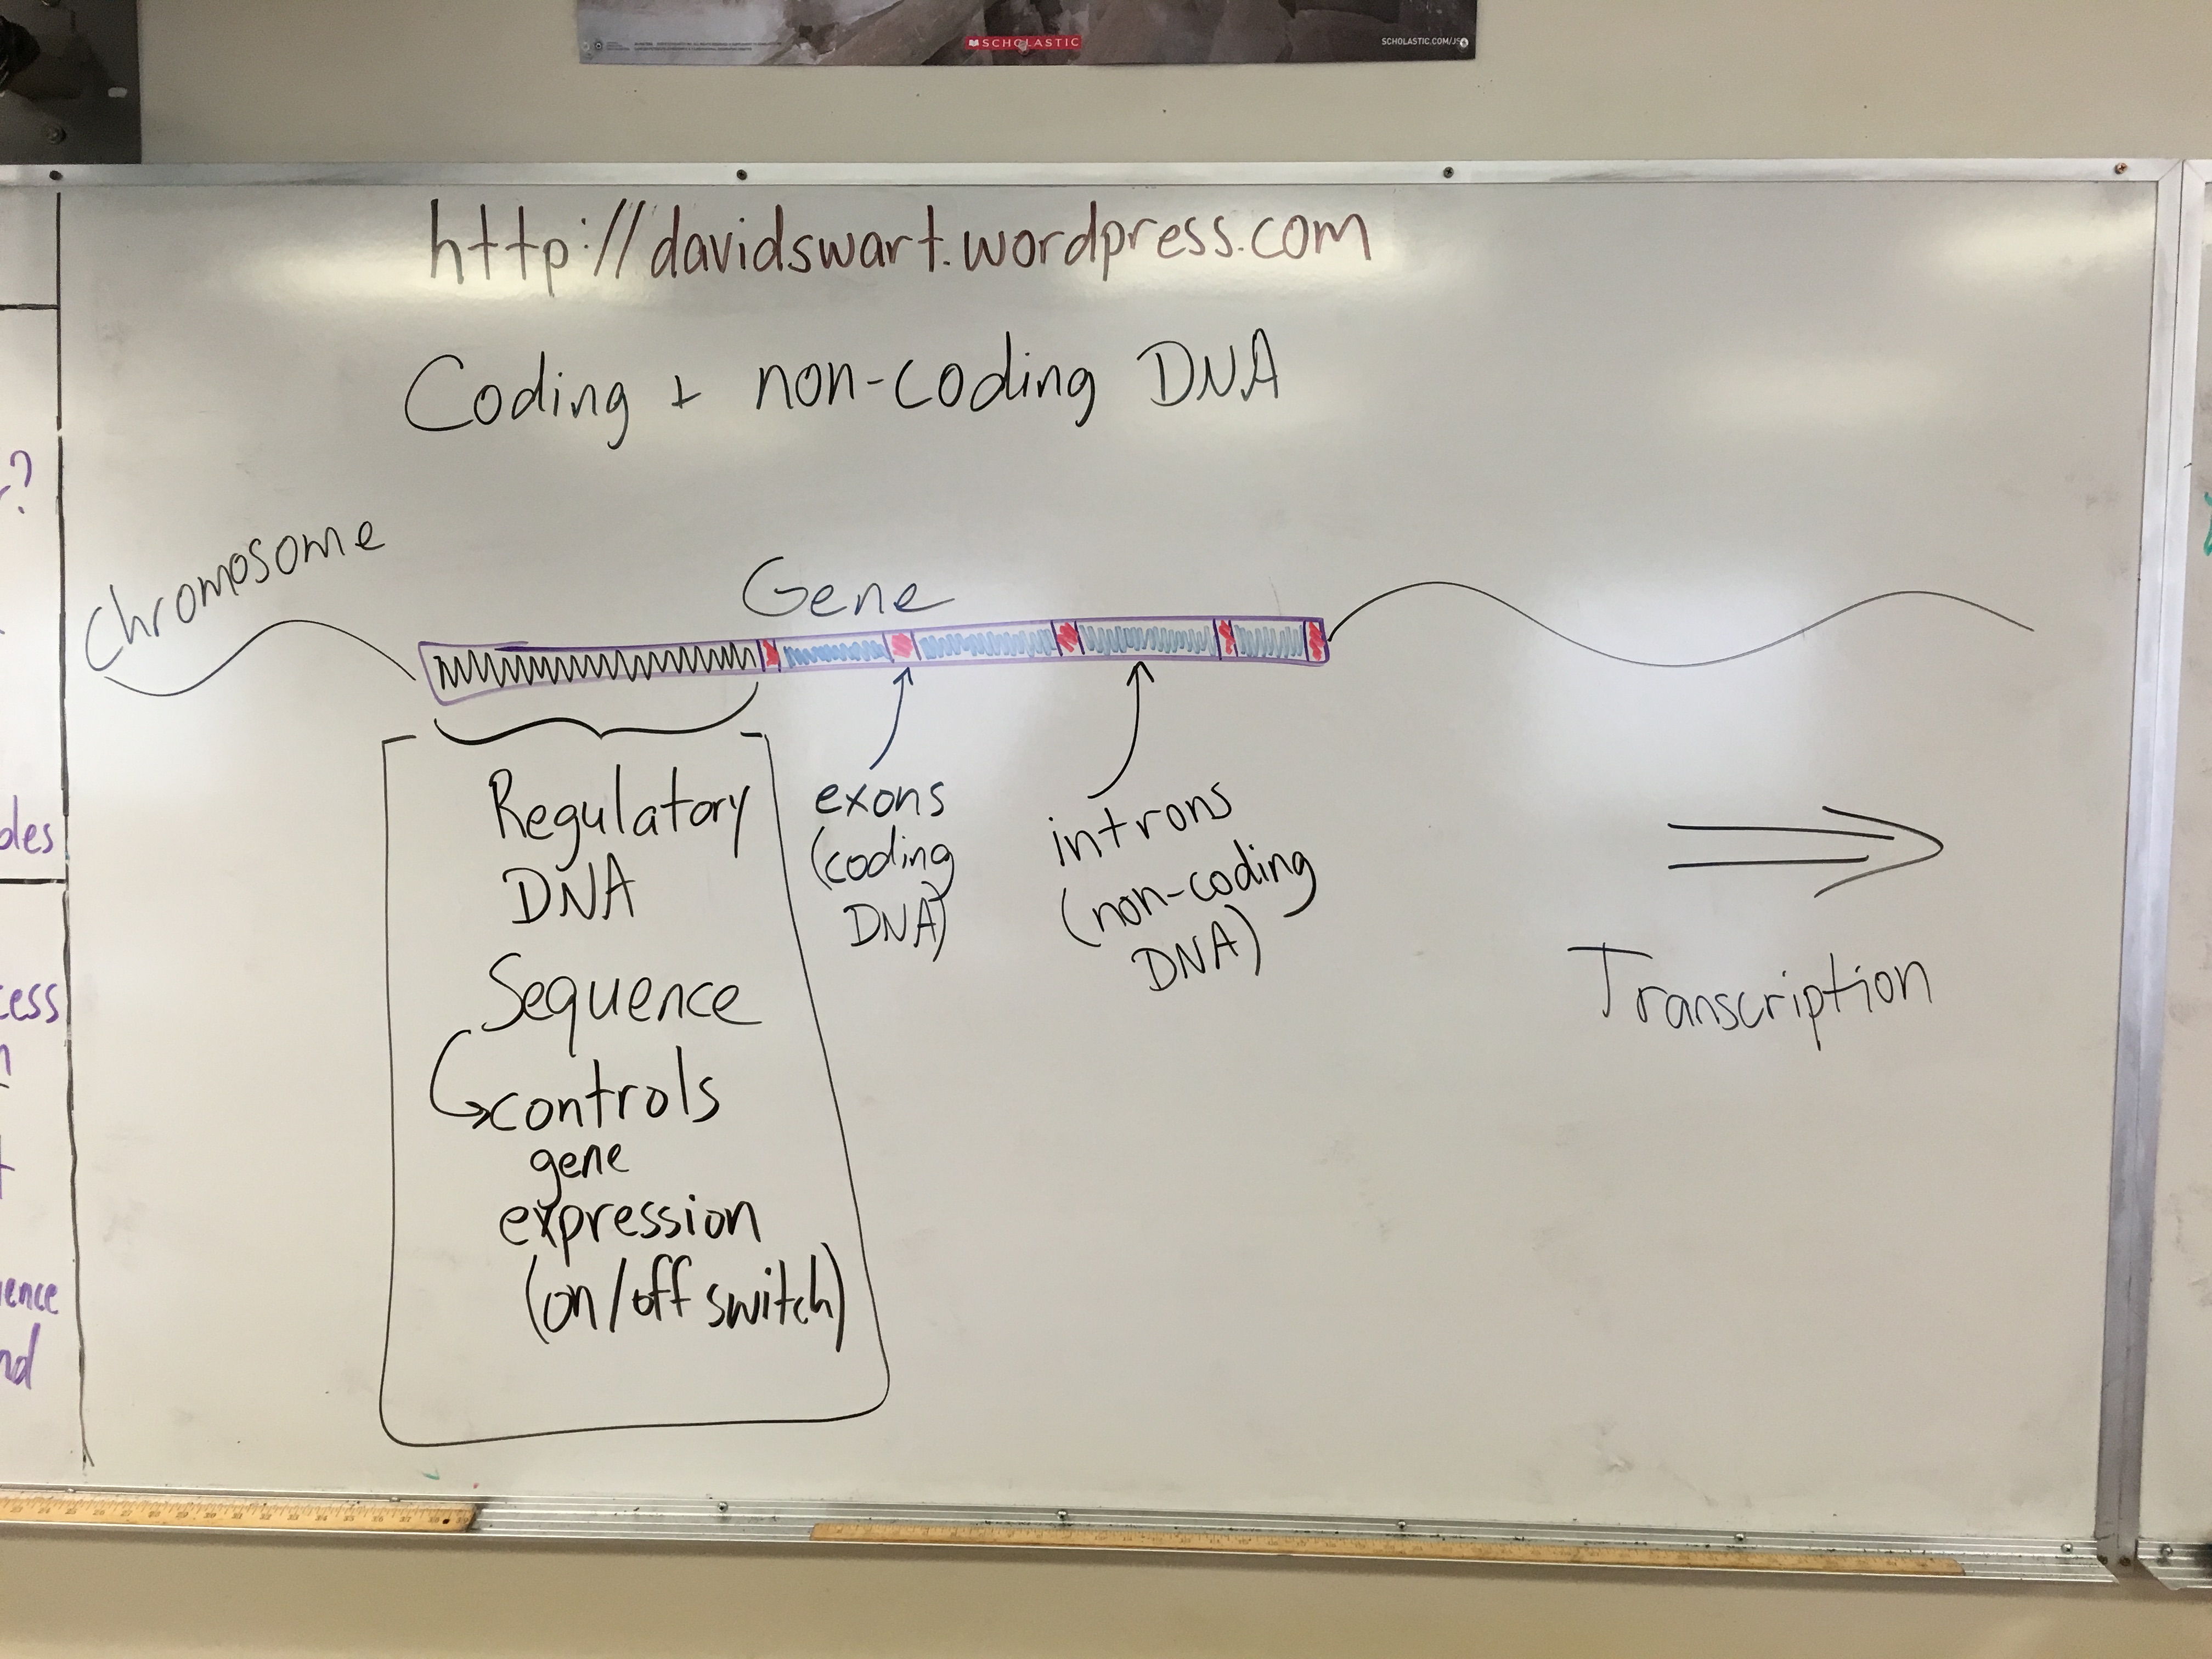 SCHOLASTIC
http://davidswart.wordpress.com
Coding + non-coding DNA
Chromosome
Gene
Regulatory
DNA
Sequence
controls
gene
expression
(on/off switch)
exons
(coding
DNA)
introns
(non-coding
DNA)
Transcription